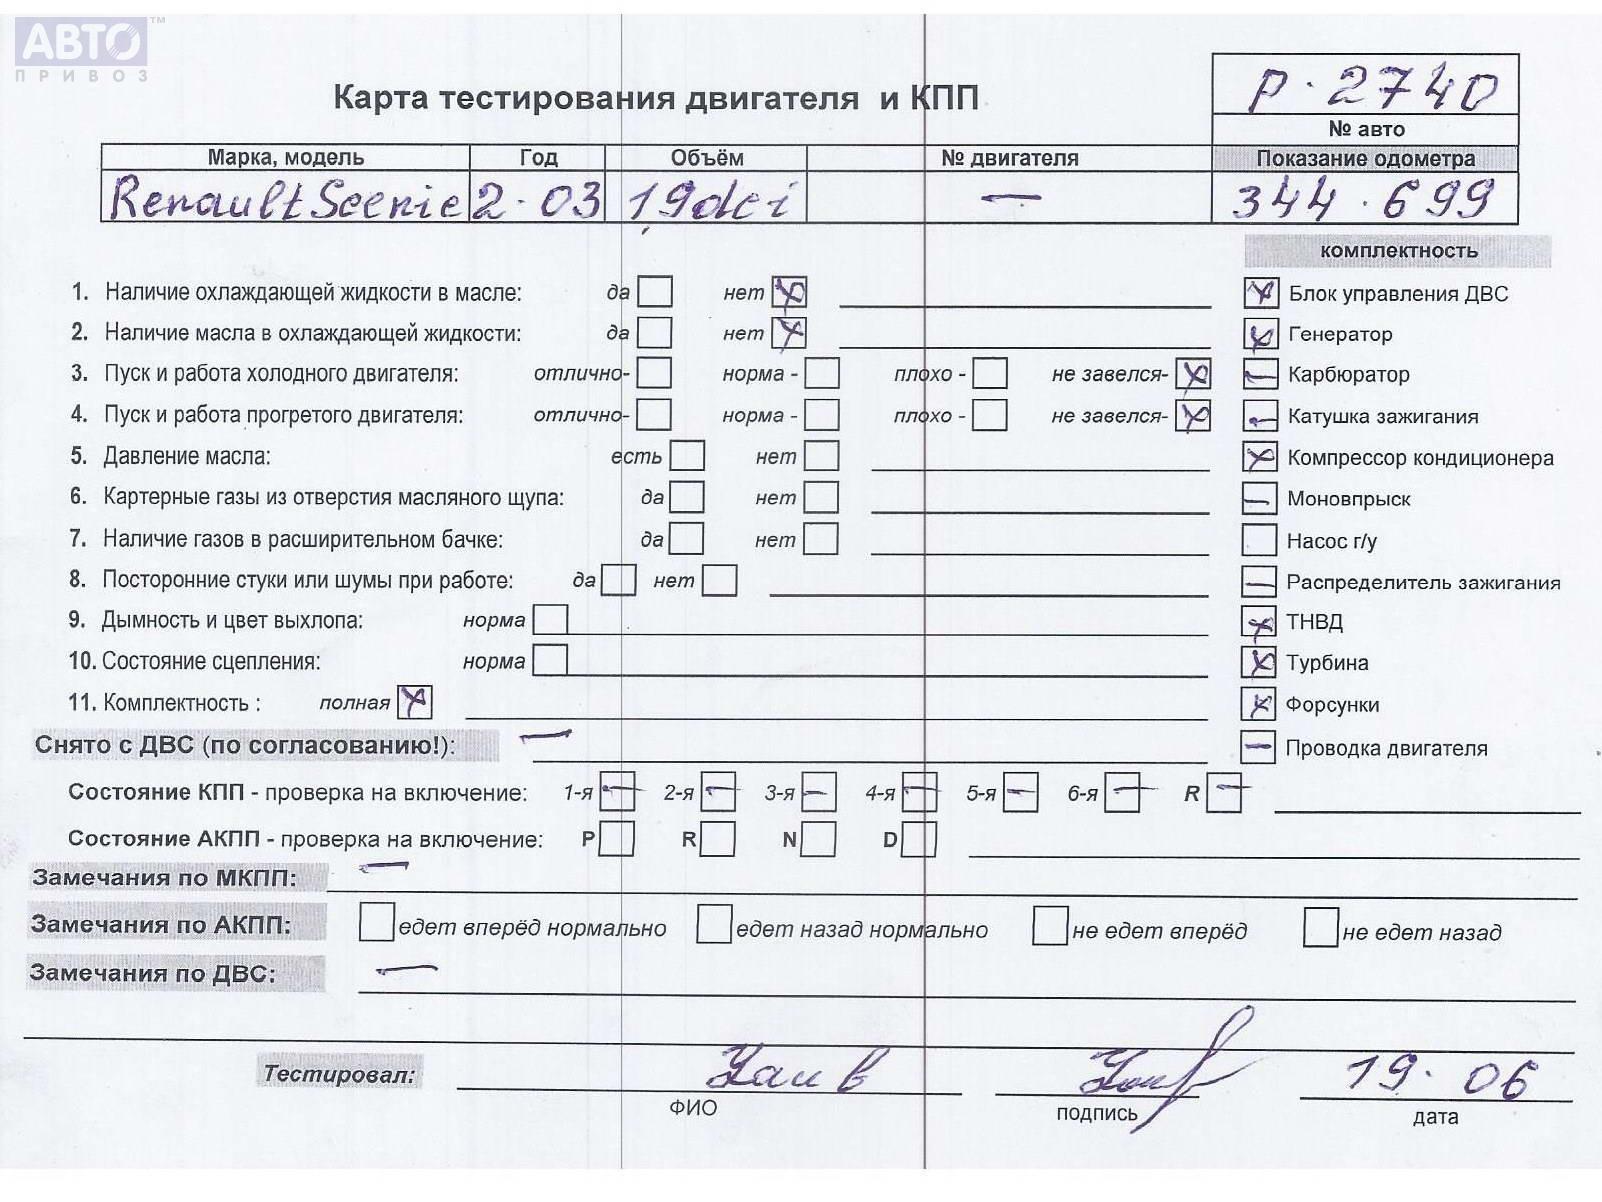 АВТО™
ПРИВОЗ
Карта тестирования двигателя и КПП
р. 2740
№ авто
Марка, модель Год Объём № двигателя Показание одометра
Renault Scenic 2.03 19dci — 344.699
комплектность
1. Наличие охлаждающей жидкости в масле: да нет Блок управления ДВС
2. Наличие масла в охлаждающей жидкости: да нет Генератор
3. Пуск и работа холодного двигателя: отлично- норма - плохо - не завелся- Карбюратор
4. Пуск и работа прогретого двигателя: отлично- норма - плохо - не завелся- Катушка зажигания
5. Давление масла: есть нет Компрессор кондиционера
6. Картерные газы из отверстия масляного щупа: да нет Моновпрыск
7. Наличие газов в расширительном бачке: да нет Насос г/у
8. Посторонние стуки или шумы при работе: да нет Распределитель зажигания
9. Дымность и цвет выхлопа: норма ТНВД
10. Состояние сцепления: норма Турбина
11. Комплектность : полная Форсунки
Снято с ДВС (по согласованию!): — Проводка двигателя
Состояние КПП - проверка на включение: 1-я 2-я 3-я 4-я 5-я 6-я R
Состояние АКПП - проверка на включение: P R N D
Замечания по МКПП: —
Замечания по АКПП: едет вперёд нормально едет назад нормально не едет вперёд не едет назад
Замечания по ДВС: —
Тестировал: 19.06
ФИО подпись дата